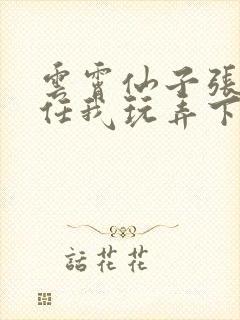 雲霄仙子張
任我玩弄下
話花花